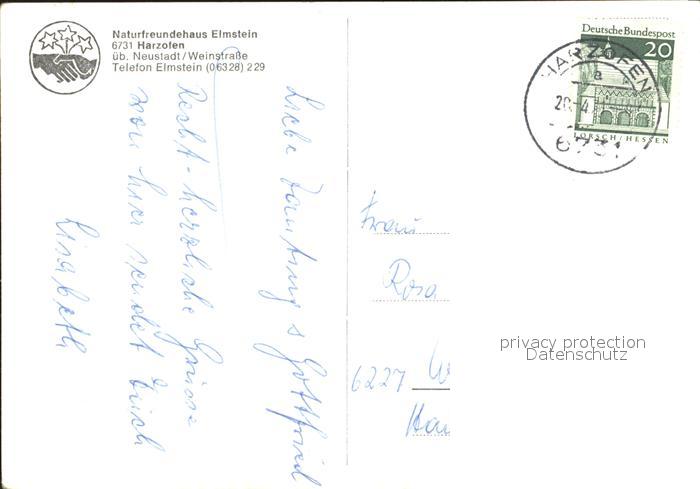 Naturfreundehaus Elmstein
6731 Harzofen
üb. Neustadt/Weinstraße
Telefon Elmstein (06328) 229
Deutsche Bundespost
20
LORSCH/HESSEN
HARZOFEN
a
6731
Liebe Gottfried
Recht herzliche Grüsse
von hier sendet Euch
Lisabeth
Frau
Rosa
6227 W
Hau
privacy protection
Datenschutz